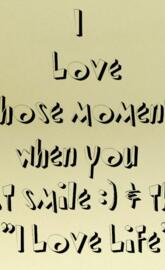 I
Love
hose momen
when you
t smile :) & t
"I Love Life"